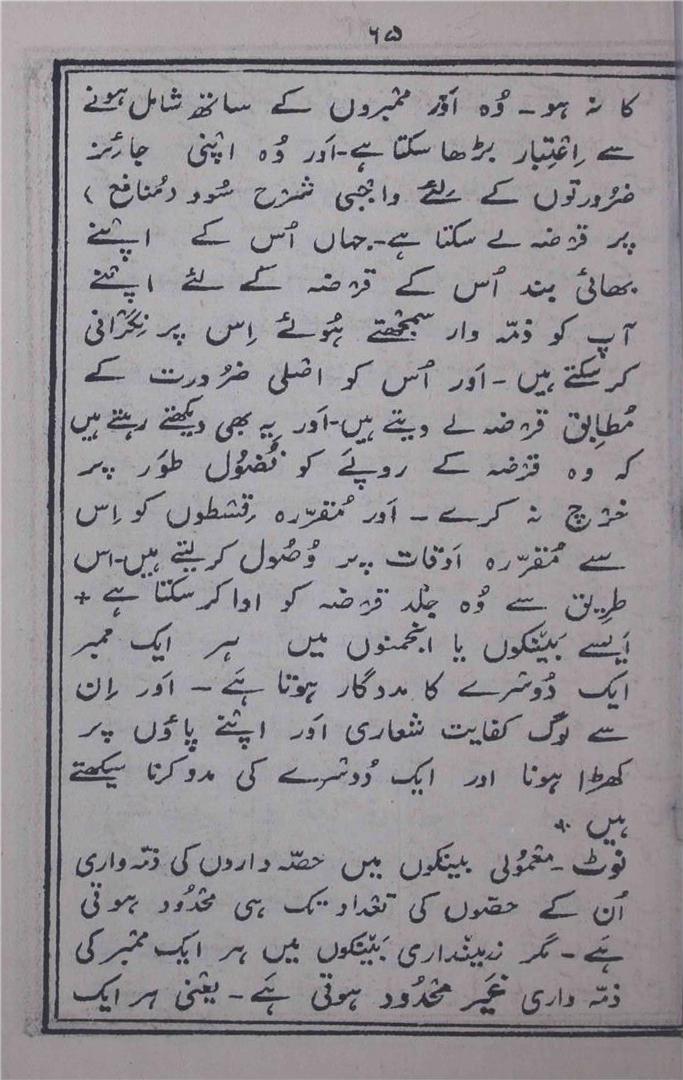 ۶۵
کا نہ ہو۔ وُہ اَور ممبروں کے ساتھ شامل ہونے
سے اِعْتِبار بڑھا سکتا ہے۔ اَور وُہ اپنی جائز
ضرُورتوں کے لئے واجبی شرْح سُود (مُنافع)
پر قرْضہ لے سکتا ہے۔ جہاں اُس کے اپنے
بھائی بند اُس کے قرْضہ کے لئے اپنے
آپ کو ذمّہ وار سمجھتے ہُوئے اِس پر نِگرانی
کر سکتے ہیں۔ اَور اُس کو اصْلی ضرُورت کے
مُطابِق قرْضہ لے دیتے ہیں۔ اَور یہ بھی دیکھتے رہتے ہیں
کہ وہ قرْضہ کے روپَے کو فُضُول طَور پر
خرْچ نہ کرے۔ اَور مُقرّرہ قِسْطوں کو اِس
سے مُقرّرہ اَوقات پر وُصُول کر لیتے ہیں۔ اس
طرِیق سے وُہ جلْد قرْضہ کو ادا کر سکتا ہے +
اَیسے بَینکوں یا انجمنوں میں ہر ایک ممبر
ایک دُوسْرے کا مددگار ہوتا ہَے۔ اَور اِن
سے لوگ کفایت شعاری اَور اپنے پاؤں پر
کھڑا ہونا اور ایک دُوسْرے کی مدد کرنا سیکھتے
ہیں +
نوٹ۔ معْمُولی بینکوں میں حصّہ داروں کی ذمّہ واری
اُن کے حصّوں کی تعْداد تک ہی محْدُود ہوتی
ہَے۔ مگر زمینْداری بَینکوں میں ہر ایک ممبر کی
ذمّہ واری غَیر محْدُود ہوتی ہَے۔ یعْنی ہر ایک